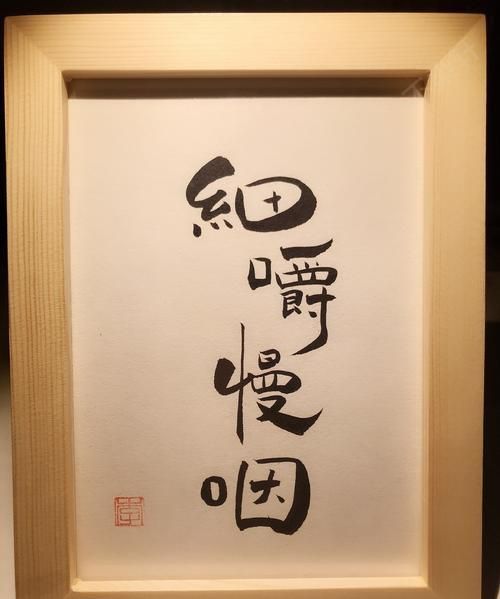 細嚼慢咽